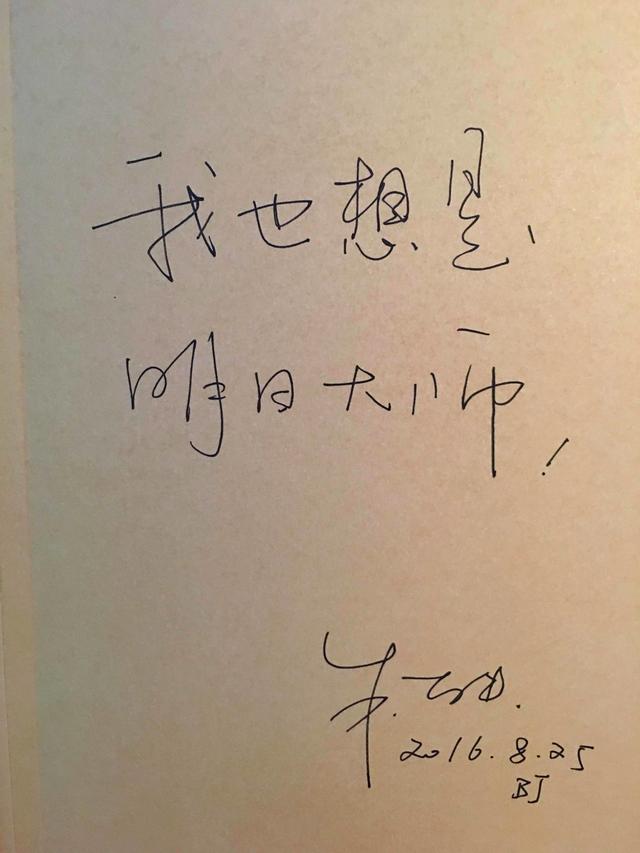 我也想是、
明日大师!
朱
2016.8.25
BJ